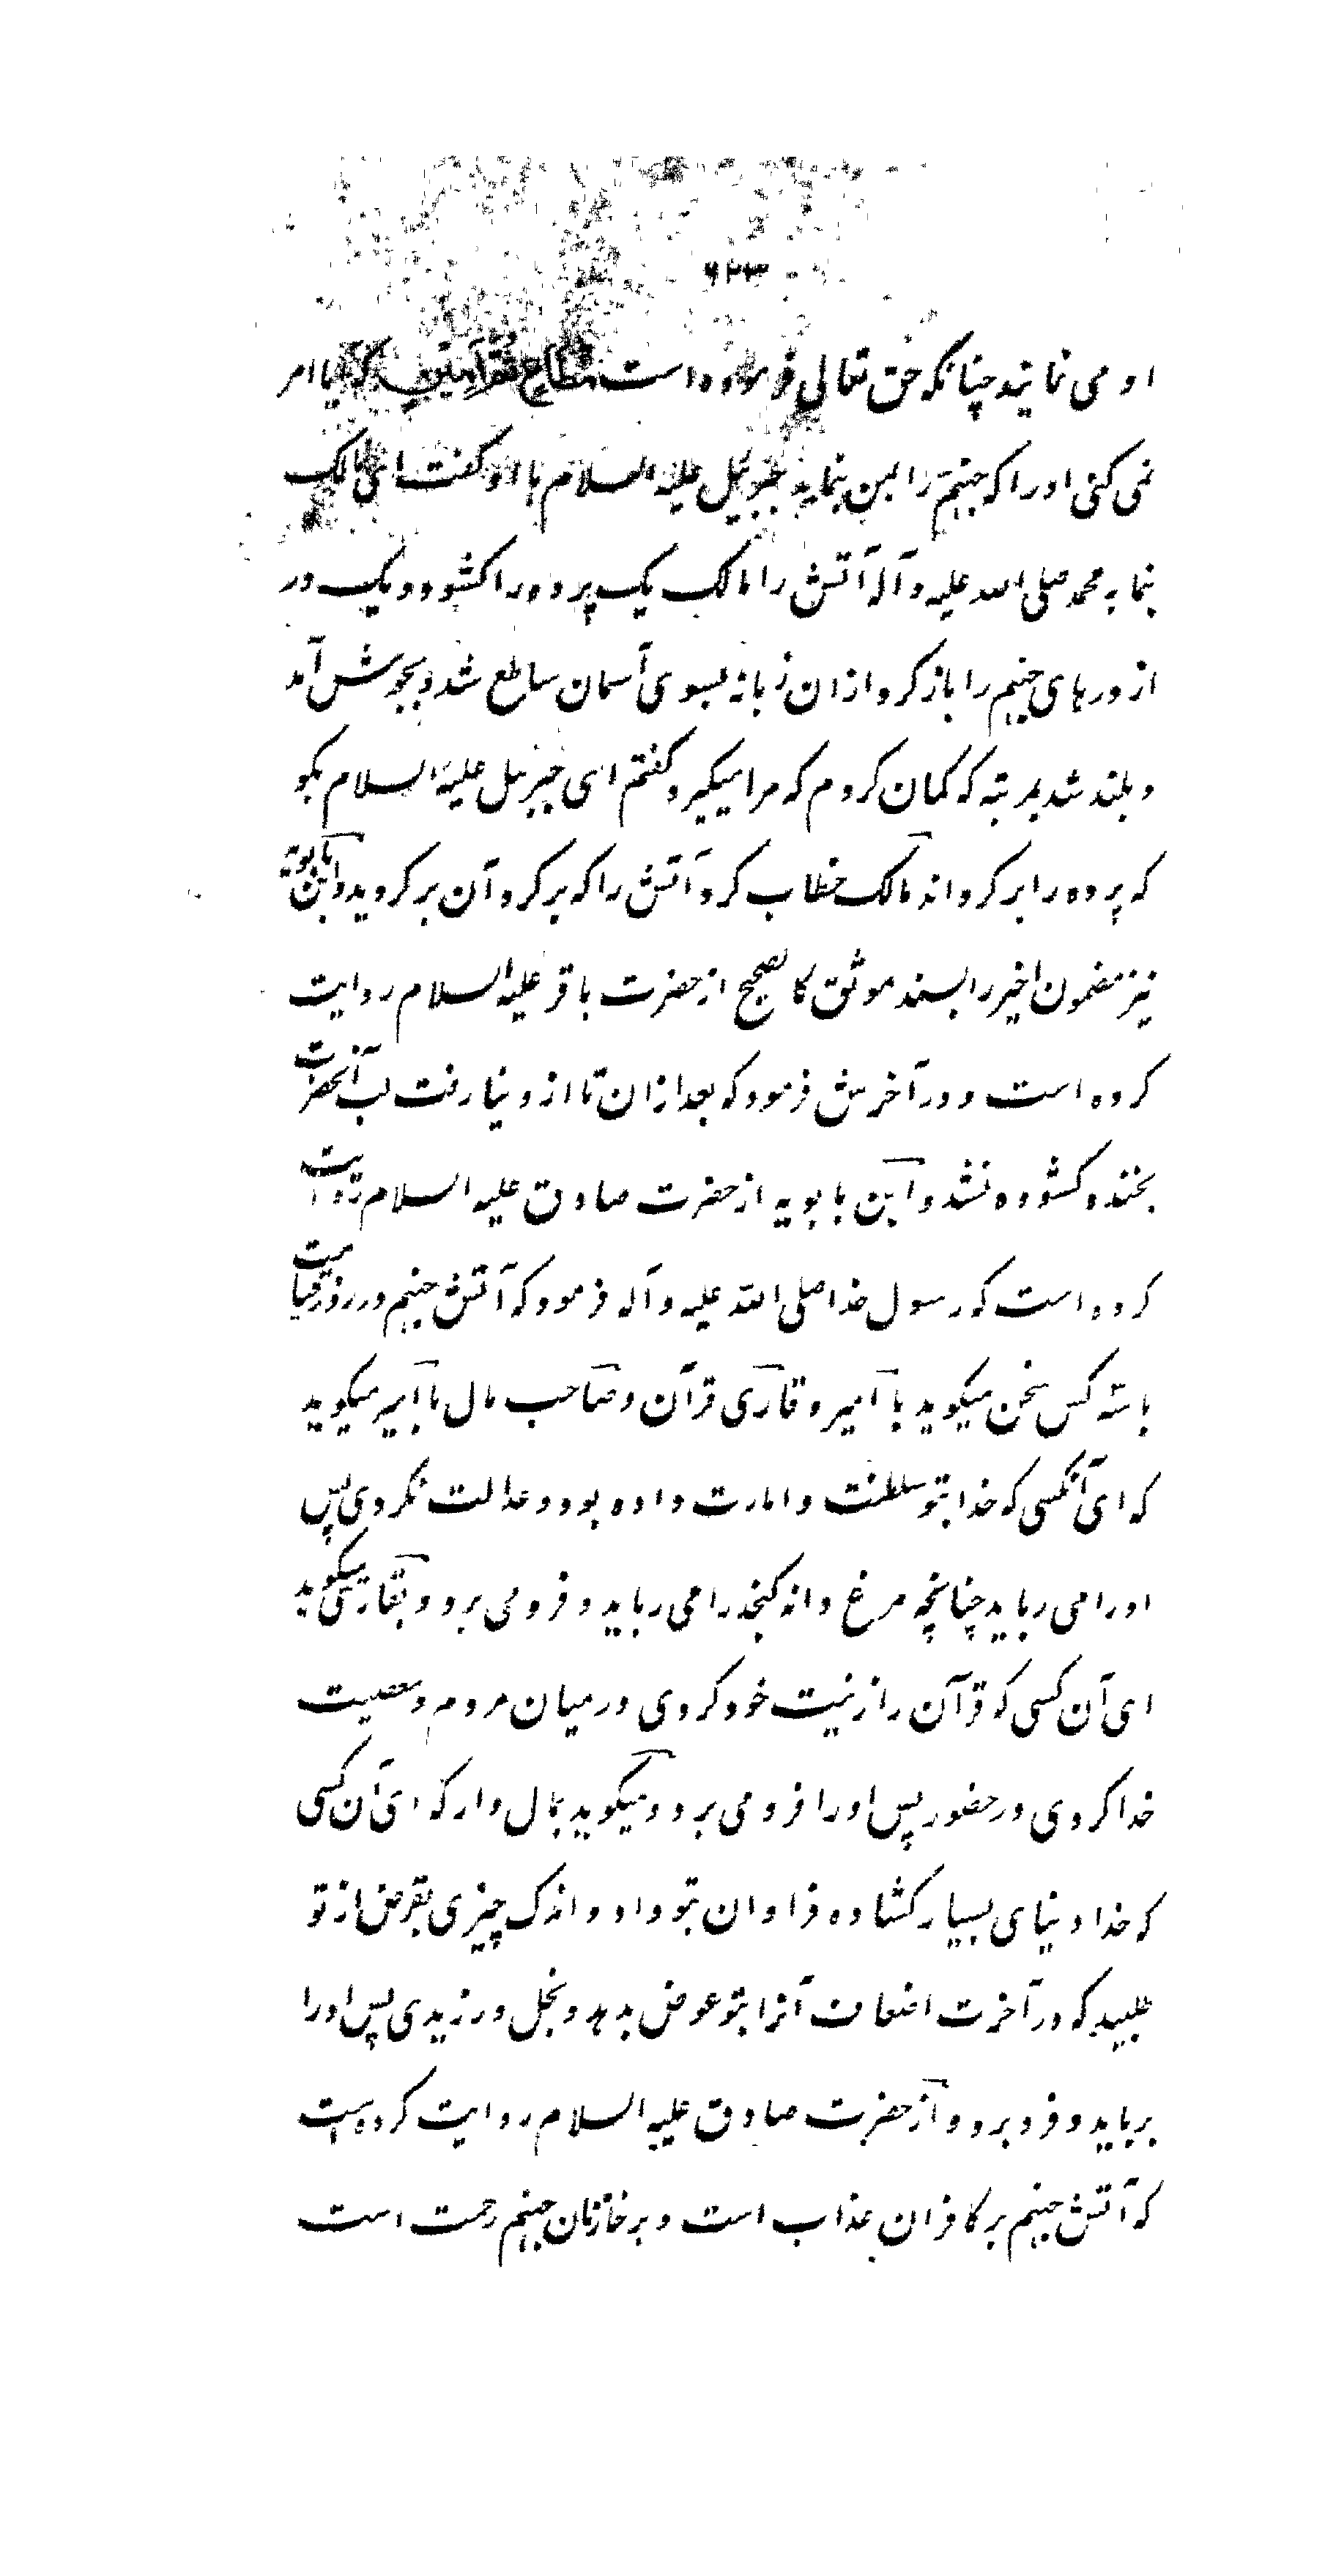 ۶۲۳
او می نمایند چنانکه حق تعالی فرموده است مطاع ثم امین که آیا امر
نمی کنی او را که جهنم را بمن بنماید جبرئیل علیه السلام باو گفت ای مالک
بنما به محمد صلی الله علیه و آله آتش را مالک یک پرده را کشود و یک در
از درهای جهنم را باز کرد از ان زبانه بسوی آسمان ساطع شد و بجوش آمد
و بلند شد بمرتبه که گمان کردم که مرا میگیرد گفتم ای جبرئیل علیه السلام بگو
که پرده را بر گرداند مالک خطاب کرد آتش را که بر گرد آن بر گردید و ابن بابویه
نیز مضمون اخیر را بسند موثق کالصحیح از حضرت باقر علیه السلام روایت
کرده است و در آخرش فرمود که بعد از ان تا از دنیا رفت لب آنحضرت
بخنده کشوده نشد و ابن بابویه از حضرت صادق علیه السلام روایت
کرده است که رسول خدا صلی الله علیه و آله فرمود که آتش جهنم در روز قیامت
با سه کس سخن میگوید با امیر و قاری قرآن و صاحب مال با امیر میگوید
که ای آنکسی که خدا بتو سلطنت و امارت داده بود و عدالت نکردی پس
او را می رباید چنانچه مرغ دانه کنجد را می رباید و فرو می برد و بقاری میگوید
ای آن کسی که قرآن را زینت خود کردی در میان مردم و معصیت
خدا کردی در حضور پس او را فرو می برد و میگوید بمال دار که ای آن کسی
که خدا دنیای بسیار کشاده فراوان بتو داد و اندک چیزی بقرض از تو
طلبید که در آخرت اضعاف آنرا بتو عوض بدهد و بخل ورزیدی پس او را
برباید و فرو برد و از حضرت صادق علیه السلام روایت کرده است
که آتش جهنم بر کافران عذاب است و بر خازنان جهنم رحمت است